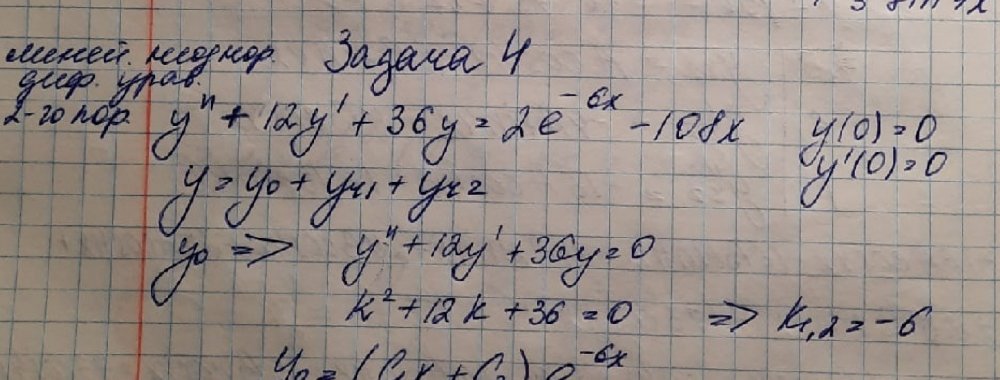 Задача 4
линей. неоднор.
диф. урав.
2-го пор. y'' + 12y' + 36y = 2e^{-6x} - 108x y(0) = 0
y'(0) = 0
y = y₀ + yч₁ + yч₂
y₀ => y'' + 12y' + 36y = 0
k² + 12k + 36 = 0 => k₁,₂ = -6
y₀ = (C₁x + C₂) e^{-6x}